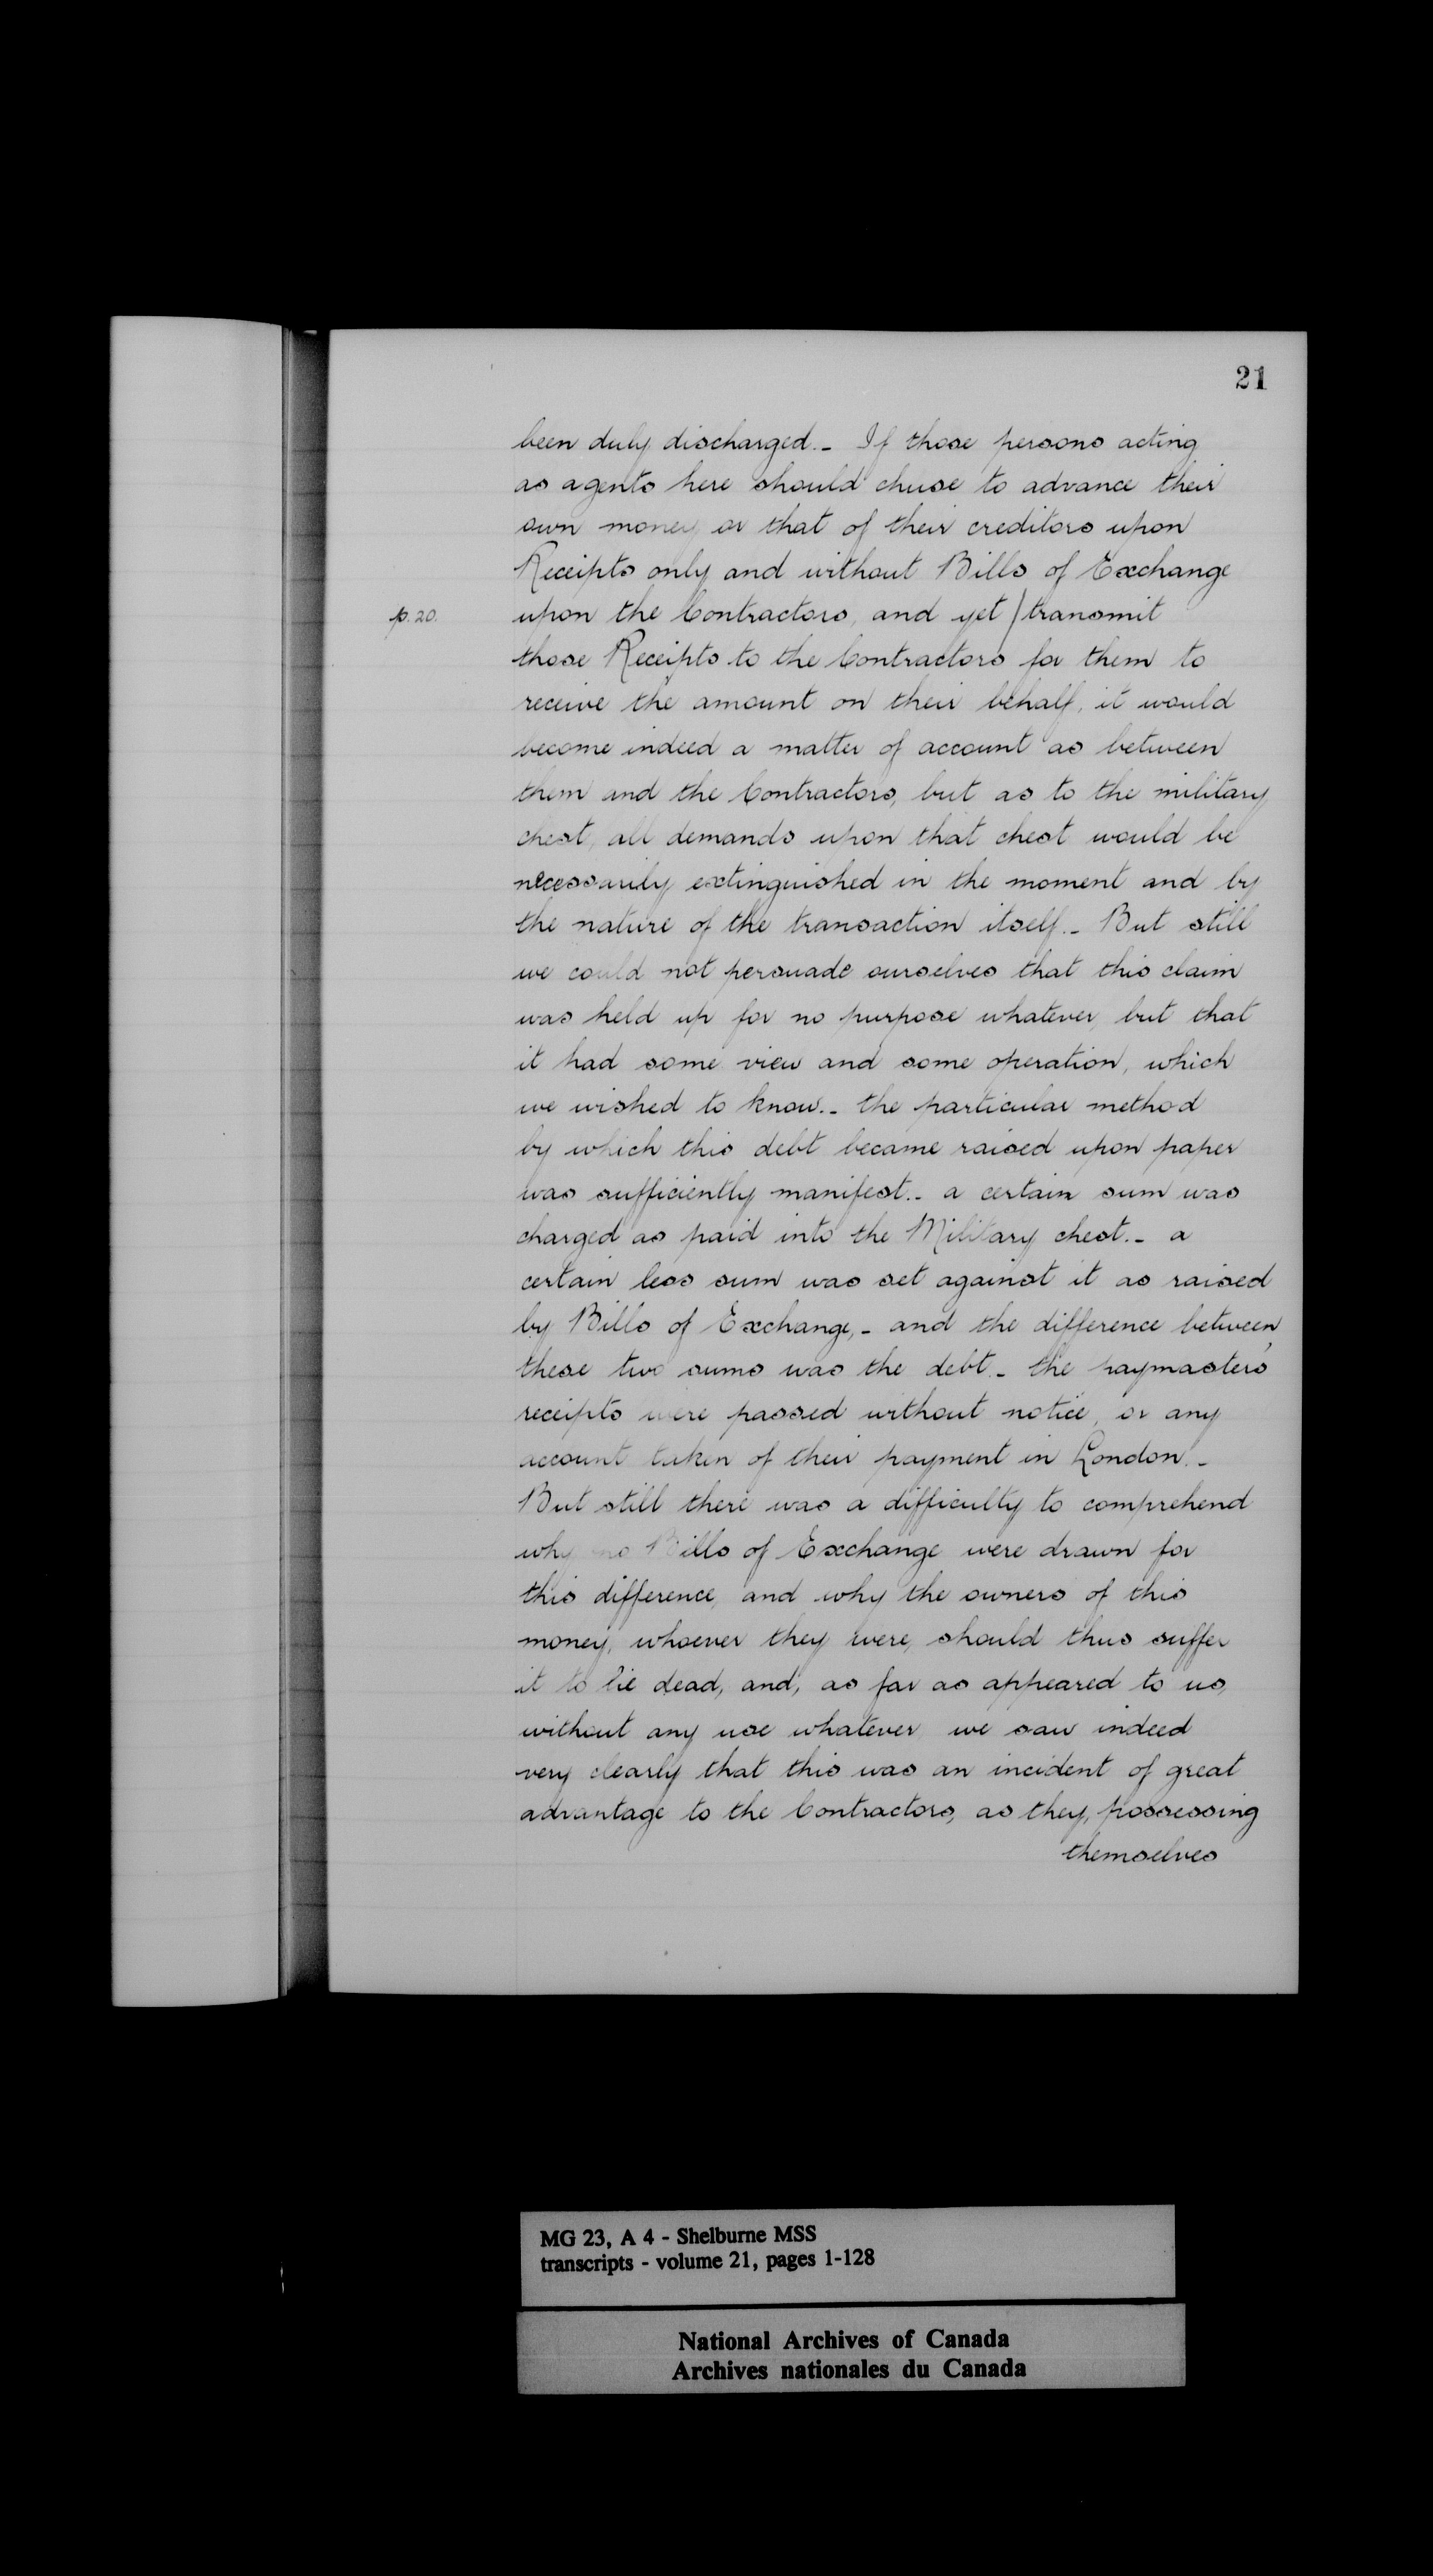 21
been duly discharged._ If those persons acting
as agents here should chuse to advance their
own money or that of their creditors upon
Receipts only and without Bills of Exchange
p. 20. upon the Contractors, and yet / transmit
those Receipts to the Contractors for them to
receive the amount on their behalf, it would
become indeed a matter of account as between
them and the Contractors, but as to the military
chest, all demands upon that chest would be
necessarily extinguished in the moment and by
the nature of the transaction itself._ But still
we could not persuade ourselves that this claim
was held up for no purpose whatever, but that
it had some view and some operation, which
we wished to know._ the particular method
by which this debt became raised upon paper
was sufficiently manifest._ a certain sum was
charged as paid into the Military chest._ a
certain less sum was set against it as raised
by Bills of Exchange,_ and the difference between
these two sums was the debt._ the paymasters'
receipts were passed without notice, or any
account taken of their payment in London._
But still there was a difficulty to comprehend
why no Bills of Exchange were drawn for
this difference, and why the owners of this
money, whoever they were, should thus suffer
it to lie dead, and, as far as appeared to us,
without any use whatever we saw indeed
very clearly that this was an incident of great
advantage to the Contractors, as they, possessing
themselves
MG 23, A 4 - Shelburne MSS
transcripts - volume 21, pages 1-128
National Archives of Canada
Archives nationales du Canada